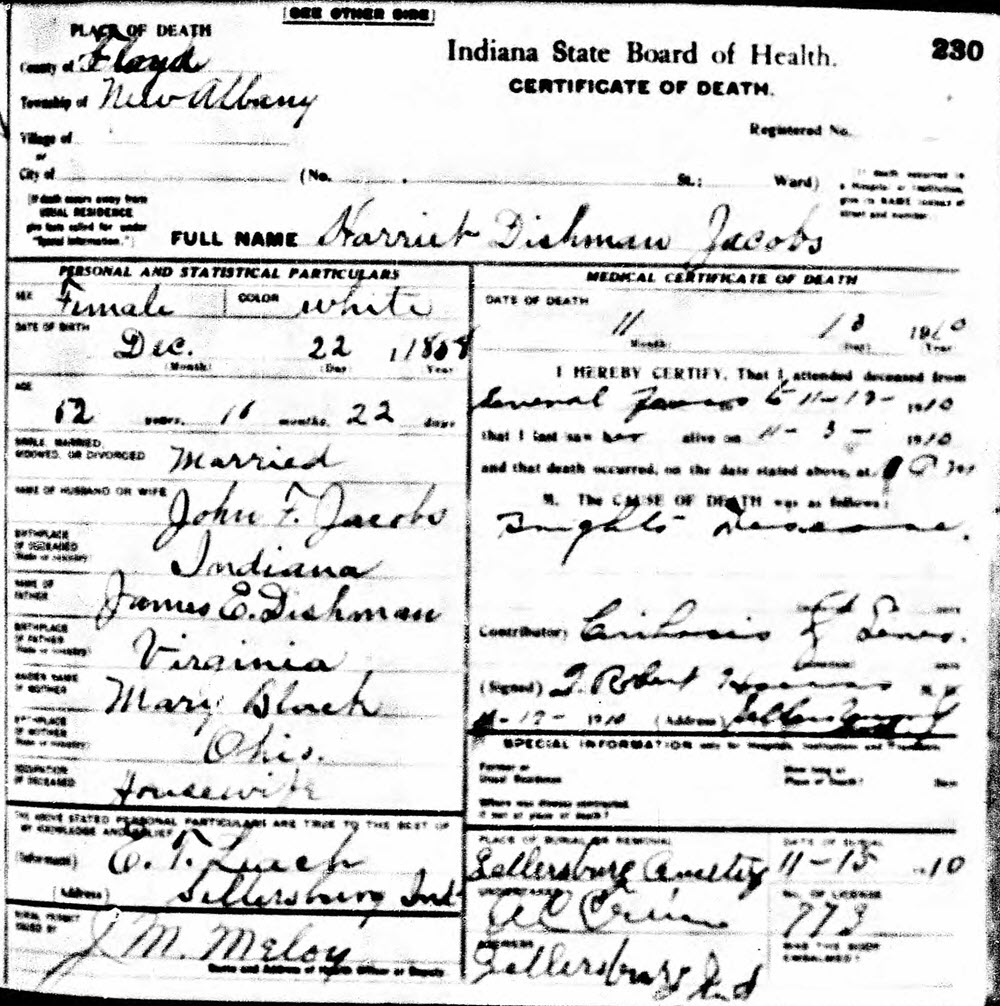 [SEE OTHER SIDE]
PLACE OF DEATH
County of Floyd
Township of New Albany
Village of
or
City of (No. St.; Ward)
Indiana State Board of Health. 230
CERTIFICATE OF DEATH.
Registered No.
[If death occurs away from
USUAL RESIDENCE
give facts called for under
"Special Information."]
[If death occurred in
a Hospital or Institution,
give its NAME instead of
street and number.]
FULL NAME Harriet Dishman Jacobs
PERSONAL AND STATISTICAL PARTICULARS
SEX Female COLOR white
DATE OF BIRTH
Dec. 22
(Month) (Day) Year
AGE
years, months, 22 days
SINGLE, MARRIED,
WIDOWED, OR DIVORCED Married
NAME OF HUSBAND OR WIFE
John F. Jacobs
BIRTHPLACE
OF DECEASED
State or country
Indiana
NAME OF
FATHER
James E. Dishman
BIRTHPLACE
OF FATHER
State or country
Virginia
MAIDEN NAME
OF MOTHER
Mary
BIRTHPLACE
OF MOTHER
State or country
Ohio.
OCCUPATION
OF DECEASED
Housewife
THE ABOVE STATED PERSONAL PARTICULARS ARE TRUE TO THE BEST OF
MY KNOWLEDGE AND BELIEF
(Informant) E. T. Leach
(Address) Sellersburg Ind
BURIAL PERMIT
ISSUED BY
J. M. Meloy
Name and Address of Health Officer or Deputy
MEDICAL CERTIFICATE OF DEATH
DATE OF DEATH
11 13 1910
Month (Day) (Year)
I HEREBY CERTIFY, That I attended deceased from
Several to 1910
that I last saw her alive on 1910
and that death occurred, on the date stated above, at
M. The CAUSE OF DEATH was as follows:
Brights Disease.
Contributory Cirrhosis of Liver.
(Signed) Robert M. D.
1910 (Address) Sellersburg
SPECIAL INFORMATION only for Hospitals, Institutions and Transients
Former or
Usual Residence
How long at
Place of Death? Days
Where was disease contracted,
if not at place of death?
PLACE OF BURIAL OR REMOVAL
Sellersburg Cemetery
DATE OF BURIAL
11-15 -10
UNDERTAKER
NO. OF LICENSE
773
ADDRESS
Sellersburg Ind
WAS THE BODY
EMBALMED?